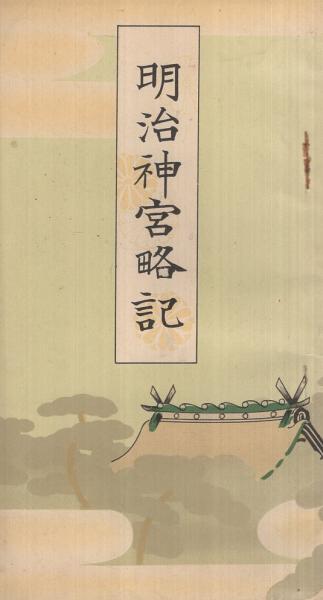 明治神宮略記